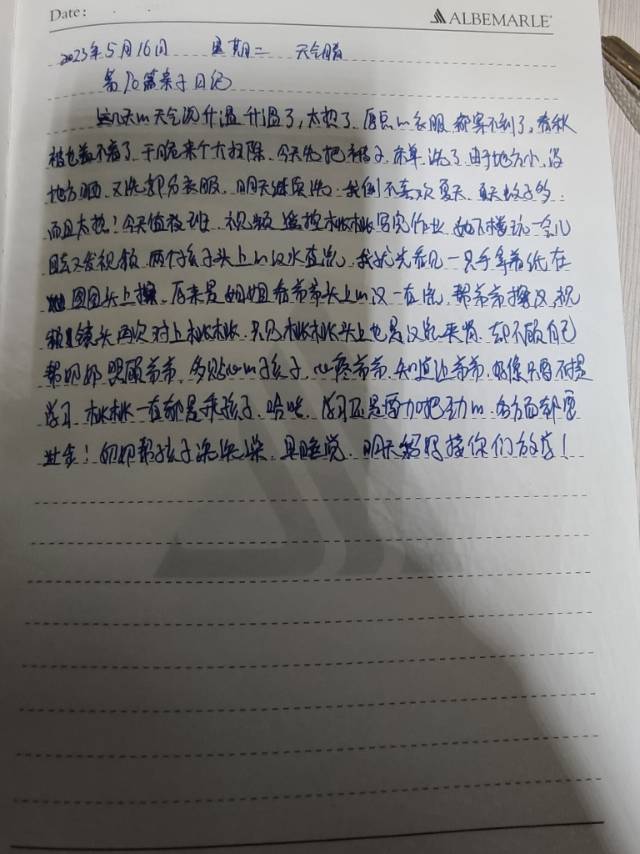 Date:
ALBEMARLE
2023年5月16日 星期二 天气晴
第10篇亲子日记
这几天的天气说升温升温了,太热了,厚点的衣服都穿不到了,春秋
被也盖不着了,干脆来个大扫除,今天先把被子、床单洗了,由于地方小,没
地方晒,又洗部分衣服,明天继续洗,我倒不喜欢夏天,夏天蚊子多,
而且太热!今天值夜班,视频遥控桃桃写完作业,她下楼玩一会儿
回去又发视频,两个孩子头上的汗水直流,我优先看见一只手拿着纸在
圆圆头上擦,原来是姐姐看弟弟头上的汗一直流,帮弟弟擦汗,视
频镜头再次对上桃桃,只见桃桃头上也是汗流夹背,却不顾自己
帮奶奶照顾弟弟,多贴心的孩子,心疼弟弟,知道让弟弟,好像只有不是
学习,桃桃一直都是乖孩子,哈哈,学习还是要加把劲的,各方面都要
业余!奶奶帮孩子洗洗澡,早睡觉,明天妈妈接你们放学!